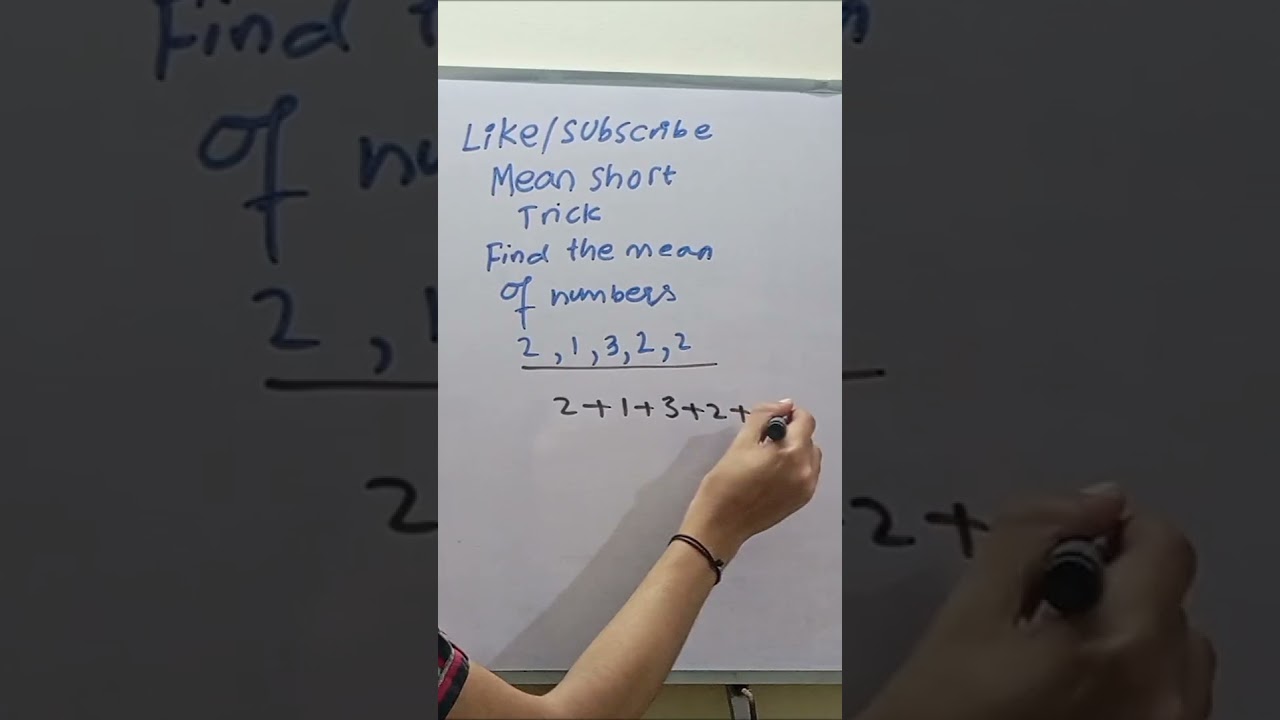 Like/Subscribe
Mean short
Trick
Find the mean
of numbers
2,1,3,2,2
2+1+3+2+